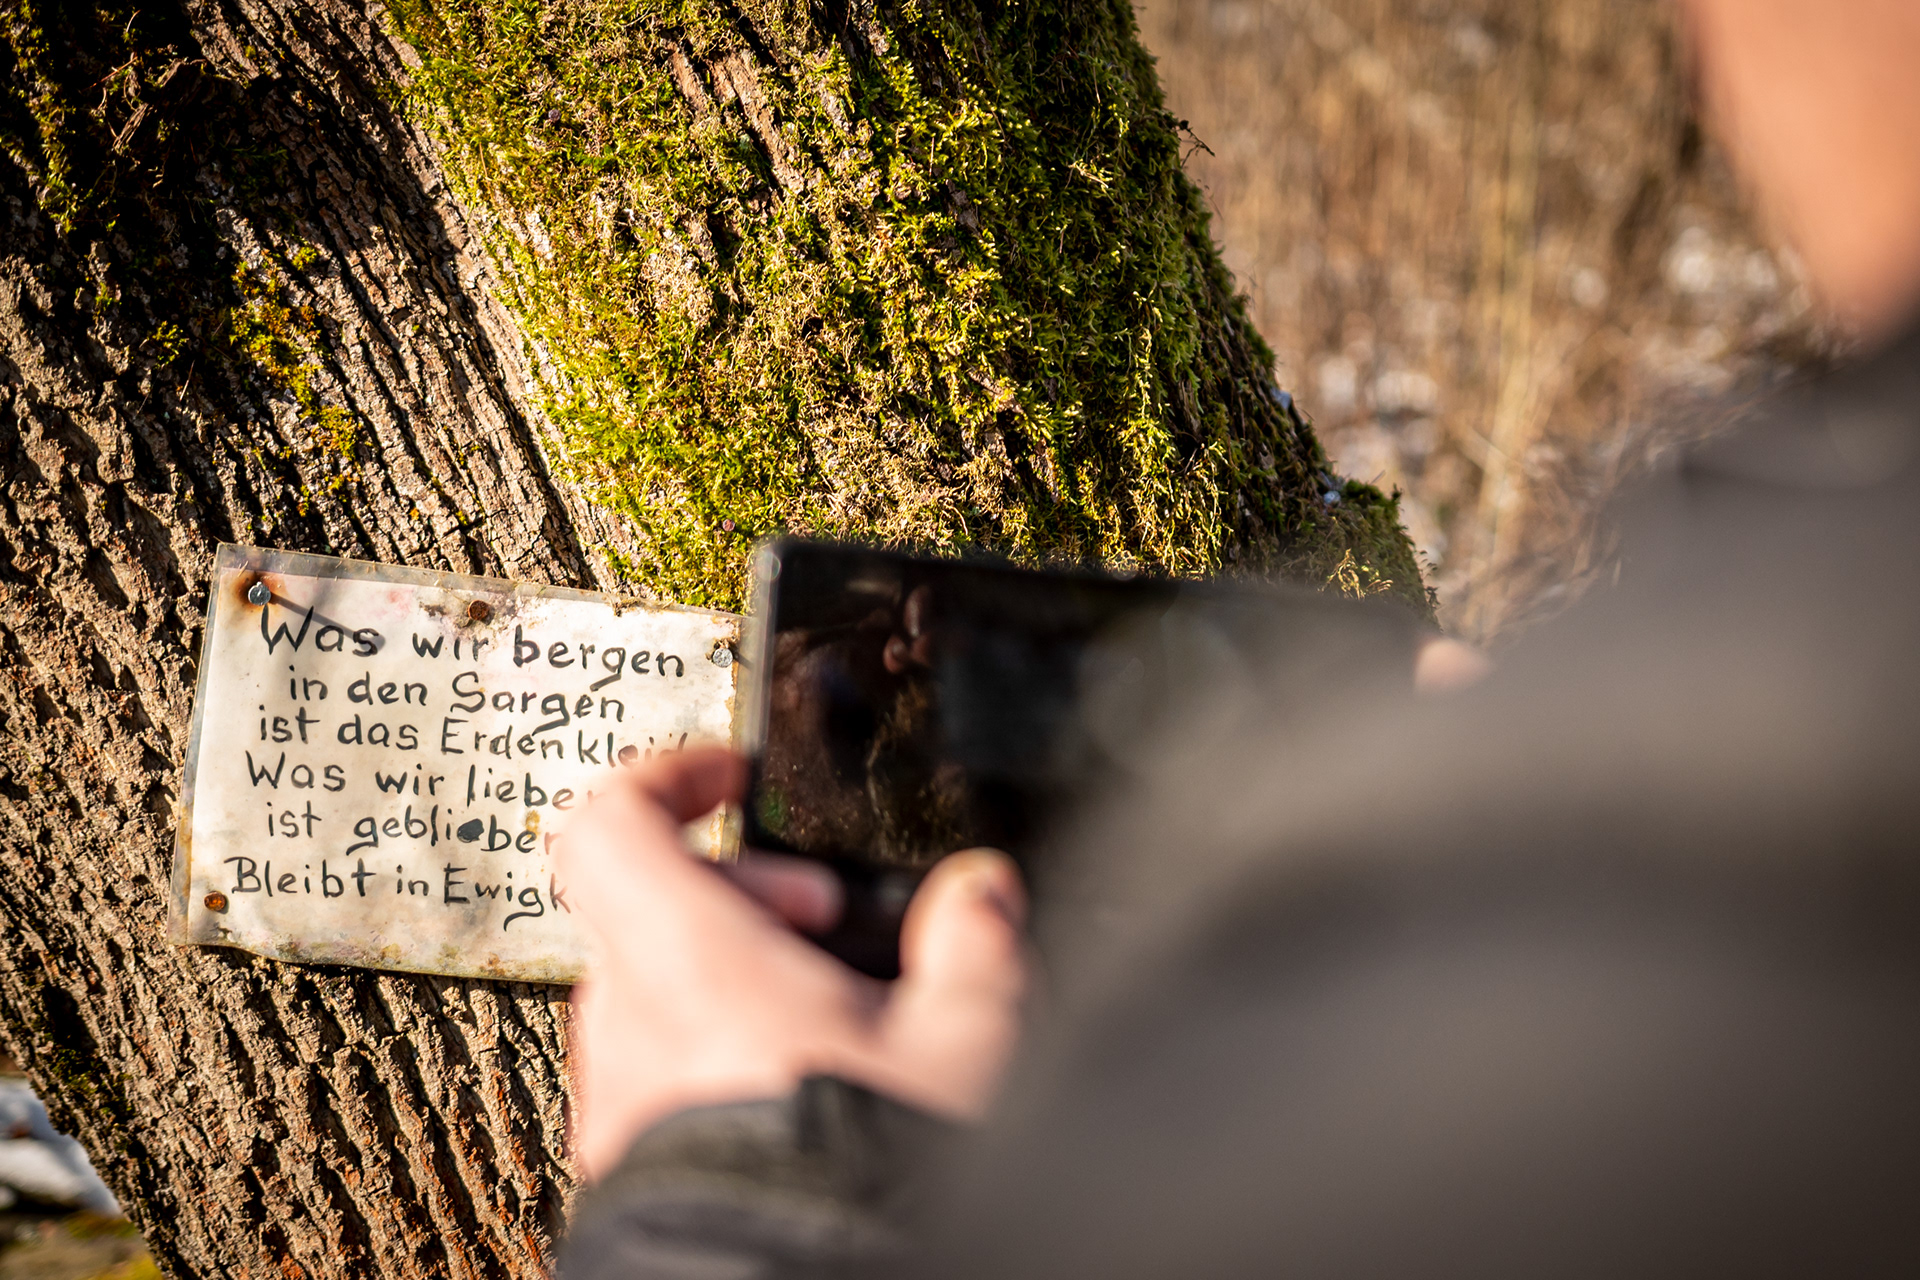 Was wir bergen
in den Särgen
ist das Erdenkleid
Was wir lieben
ist geblieben
Bleibt in